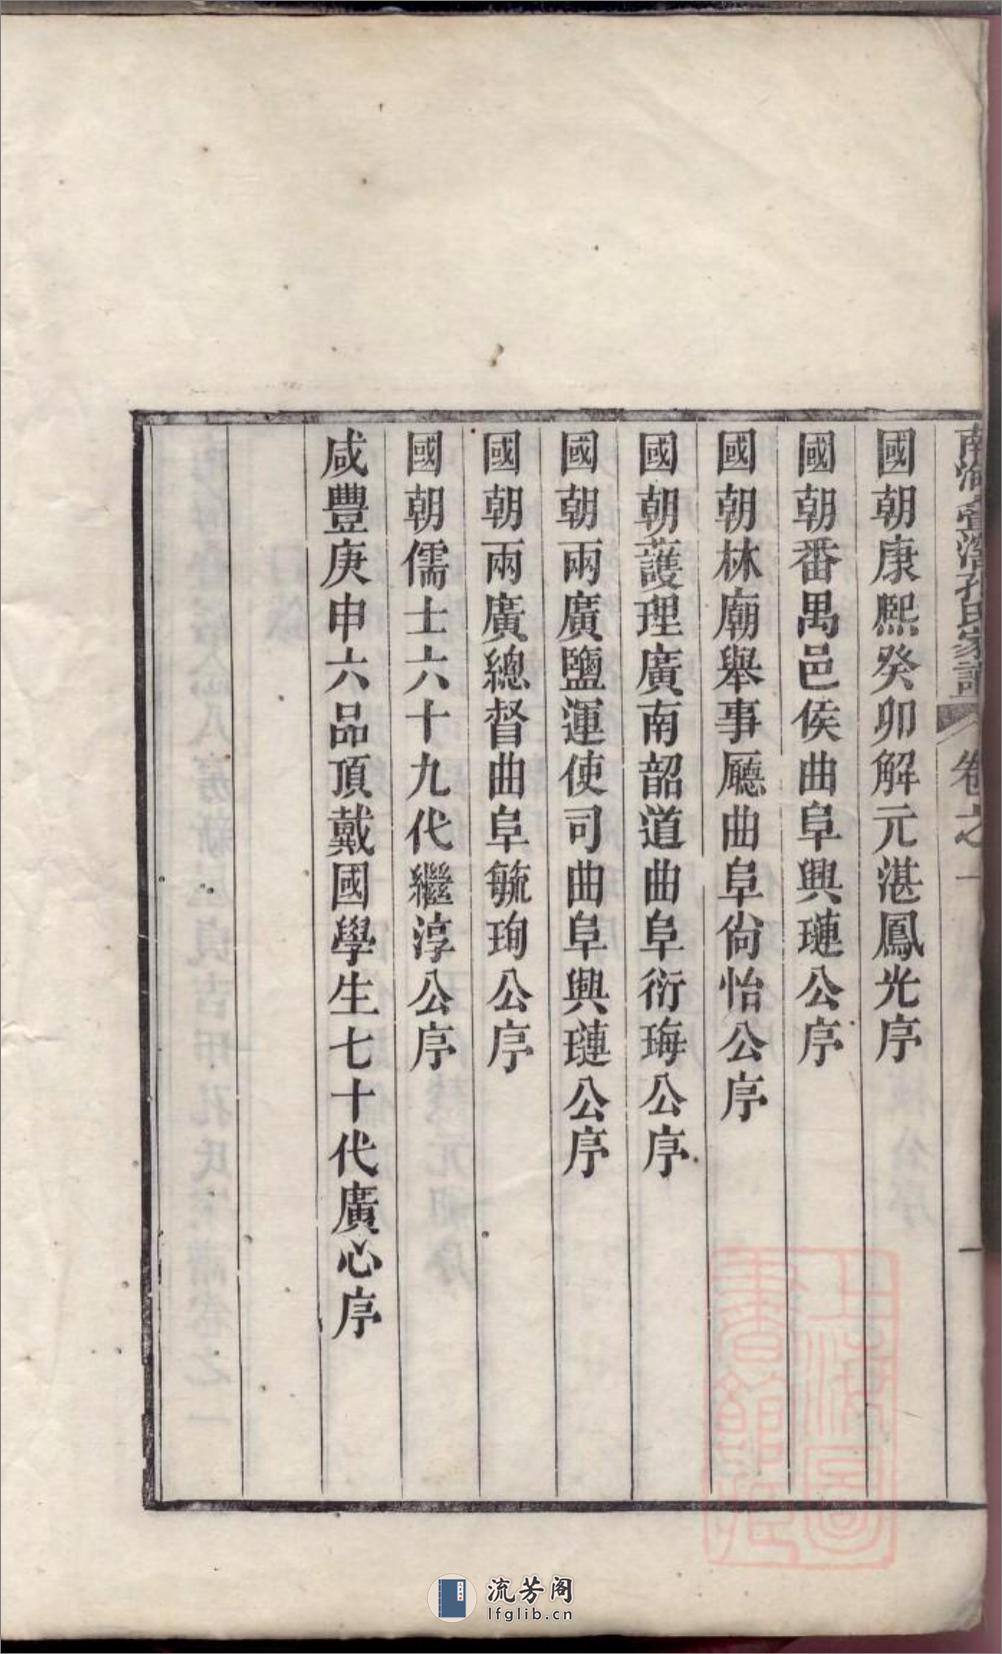 南海疊滘孔氏家譜 卷之一 一
國朝康熙癸卯解元湛鳳光序
國朝番禺邑侯曲阜興璉公序
國朝林廟舉事廳曲阜尙怡公序
國朝護理廣南韶道曲阜衍珻公序
國朝兩廣鹽運使司曲阜興璉公序
國朝兩廣總督曲阜毓珣公序
國朝儒士六十九代繼淳公序
咸豐庚申六品頂戴國學生七十代廣心序
上海圖
書館藏
流芳阁
lfglib.cn